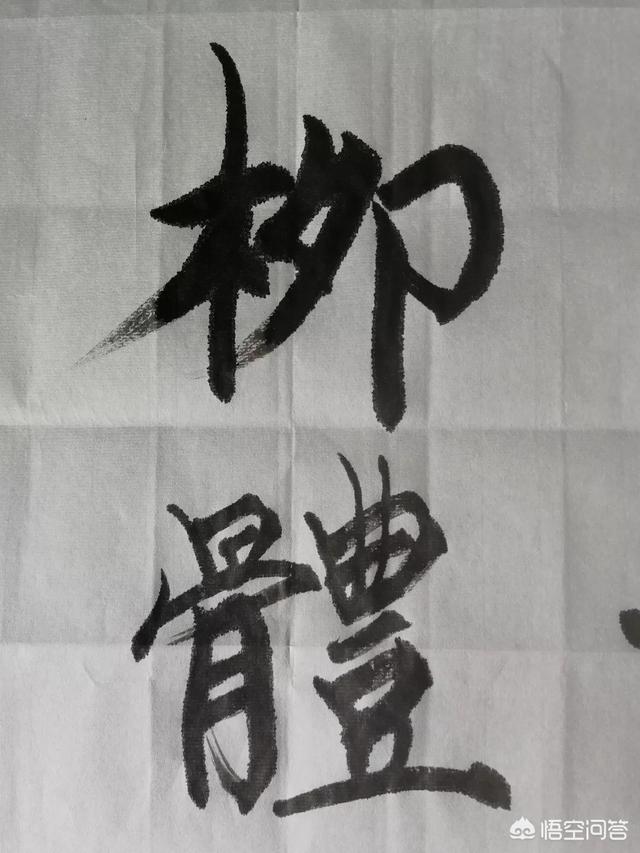 柳
體
悟空问答